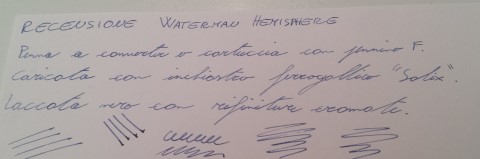 RECENSIONE WATERMAN HEMISPHERE
Penna a converter o cartuccia con pennino F.
Caricata con inchiostro ferrogallico "Salix".
Laccata nero con rifiniture cromate.